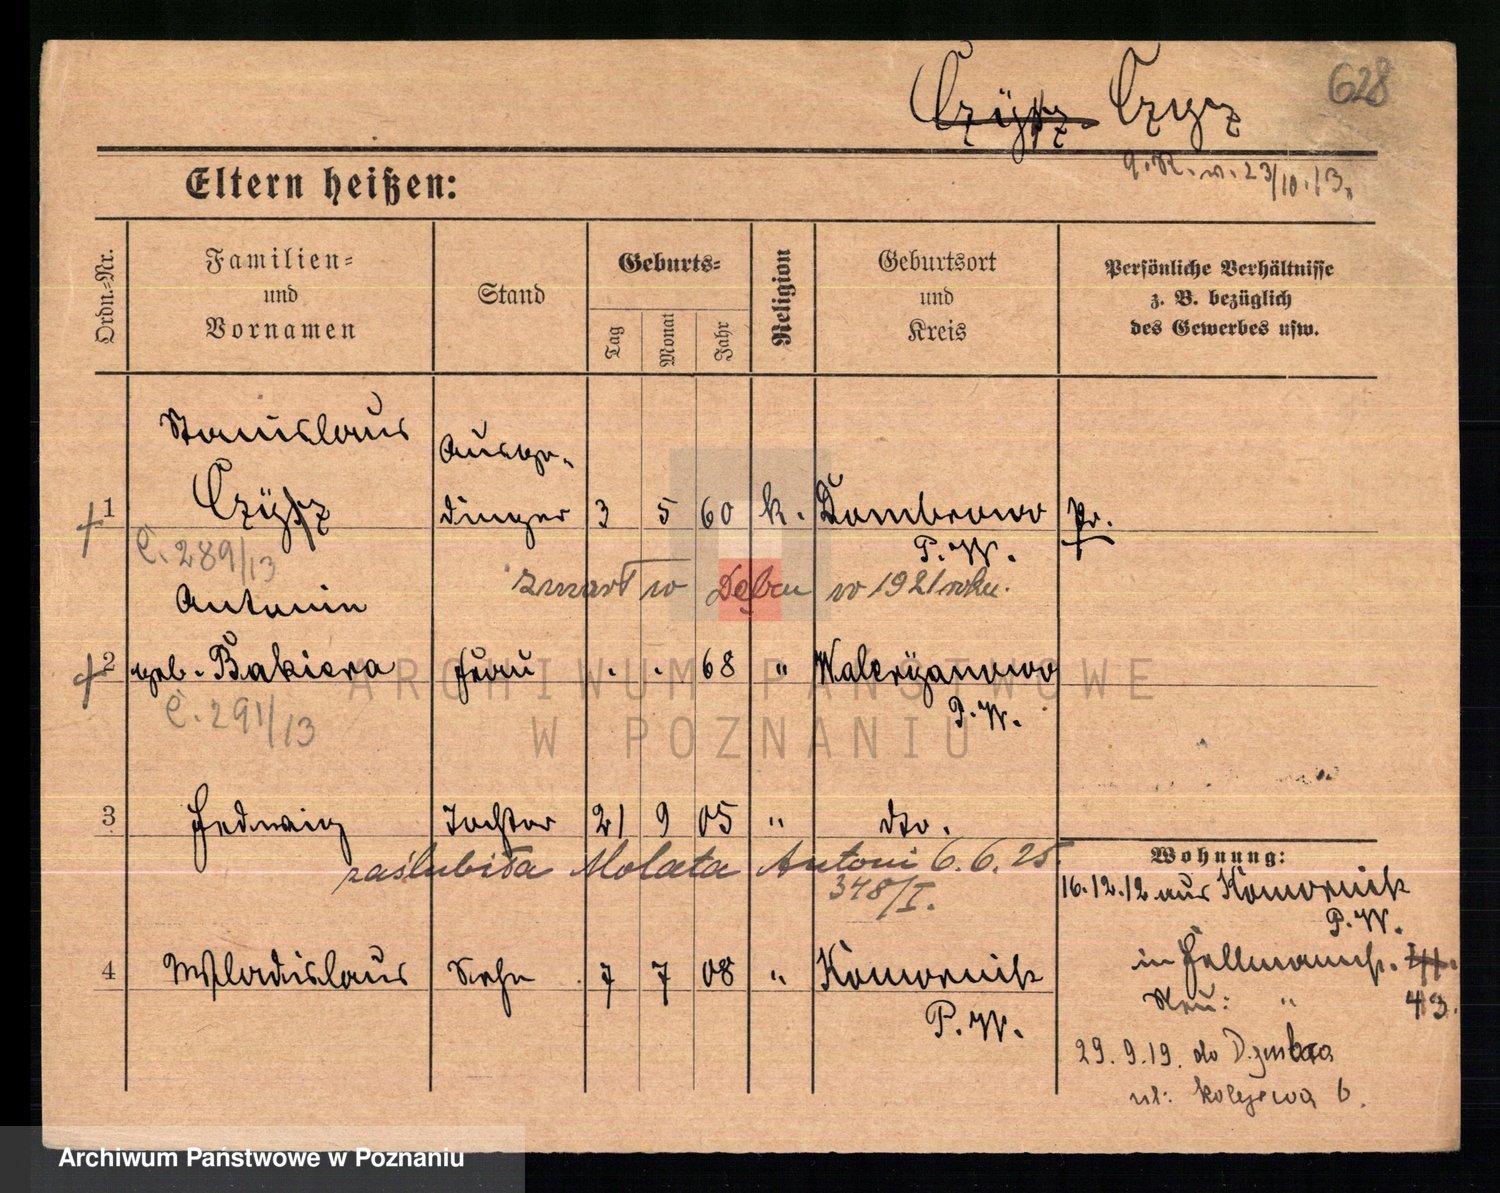 Czÿsz Czysz 628
g. R. v. 23/10.13.
Eltern heißen:
Ordn.=Nr.
Familien=
und
Vornamen
Stand
Geburts=
Tag
Monat
Jahr
Religion
Geburtsort
und
Kreis
Persönliche Verhältnisse
z. B. bezüglich
des Gewerbes usw.
Stanislaus Ausge-
1 Czÿsz dinger 3 5 60 k. Dombrowo Pr.
P. W.
C. 289/13
zmarł w Dębcu w 1921 roku.
Antonin
2 geb. Bakiera Frau . . 68 " Walerÿanowo
P. W.
C. 291/13
3 Hedwig Tochter 21 9 05 " dto.
zaślubiła Molata Antoni 6.6.25.
348/I.
4 Wladislaus Sohn 7 7 08 " Komornik
P. W.
Wohnung:
16.12.12 aus Komornik
P. W.
in
Neu: " 43.
29.9.19. do
ul: kolejowa 6.
ARCHIWUM PAŃSTWOWE
W POZNANIU
Archiwum Państwowe w Poznaniu